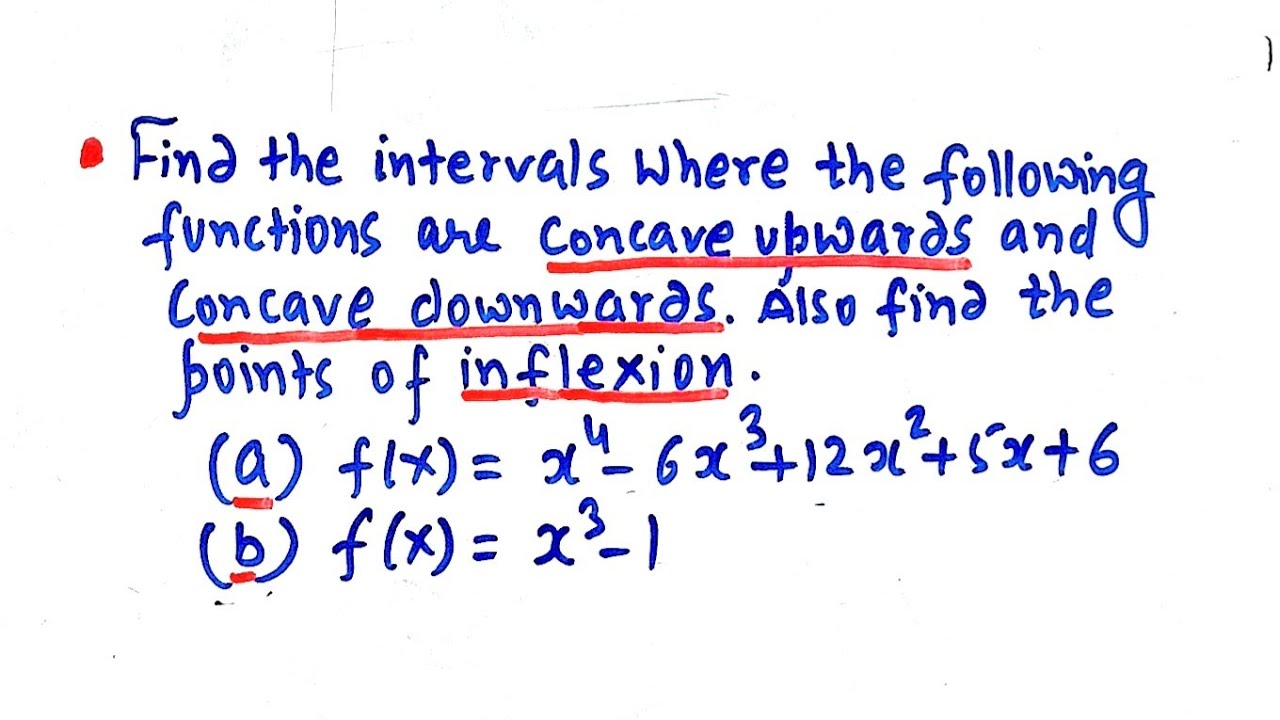 Find the intervals where the following
functions are concave upwards and
concave downwards. Also find the
points of inflexion.
(a) f(x) = x⁴ - 6x³ + 12x² + 5x + 6
(b) f(x) = x³ - 1